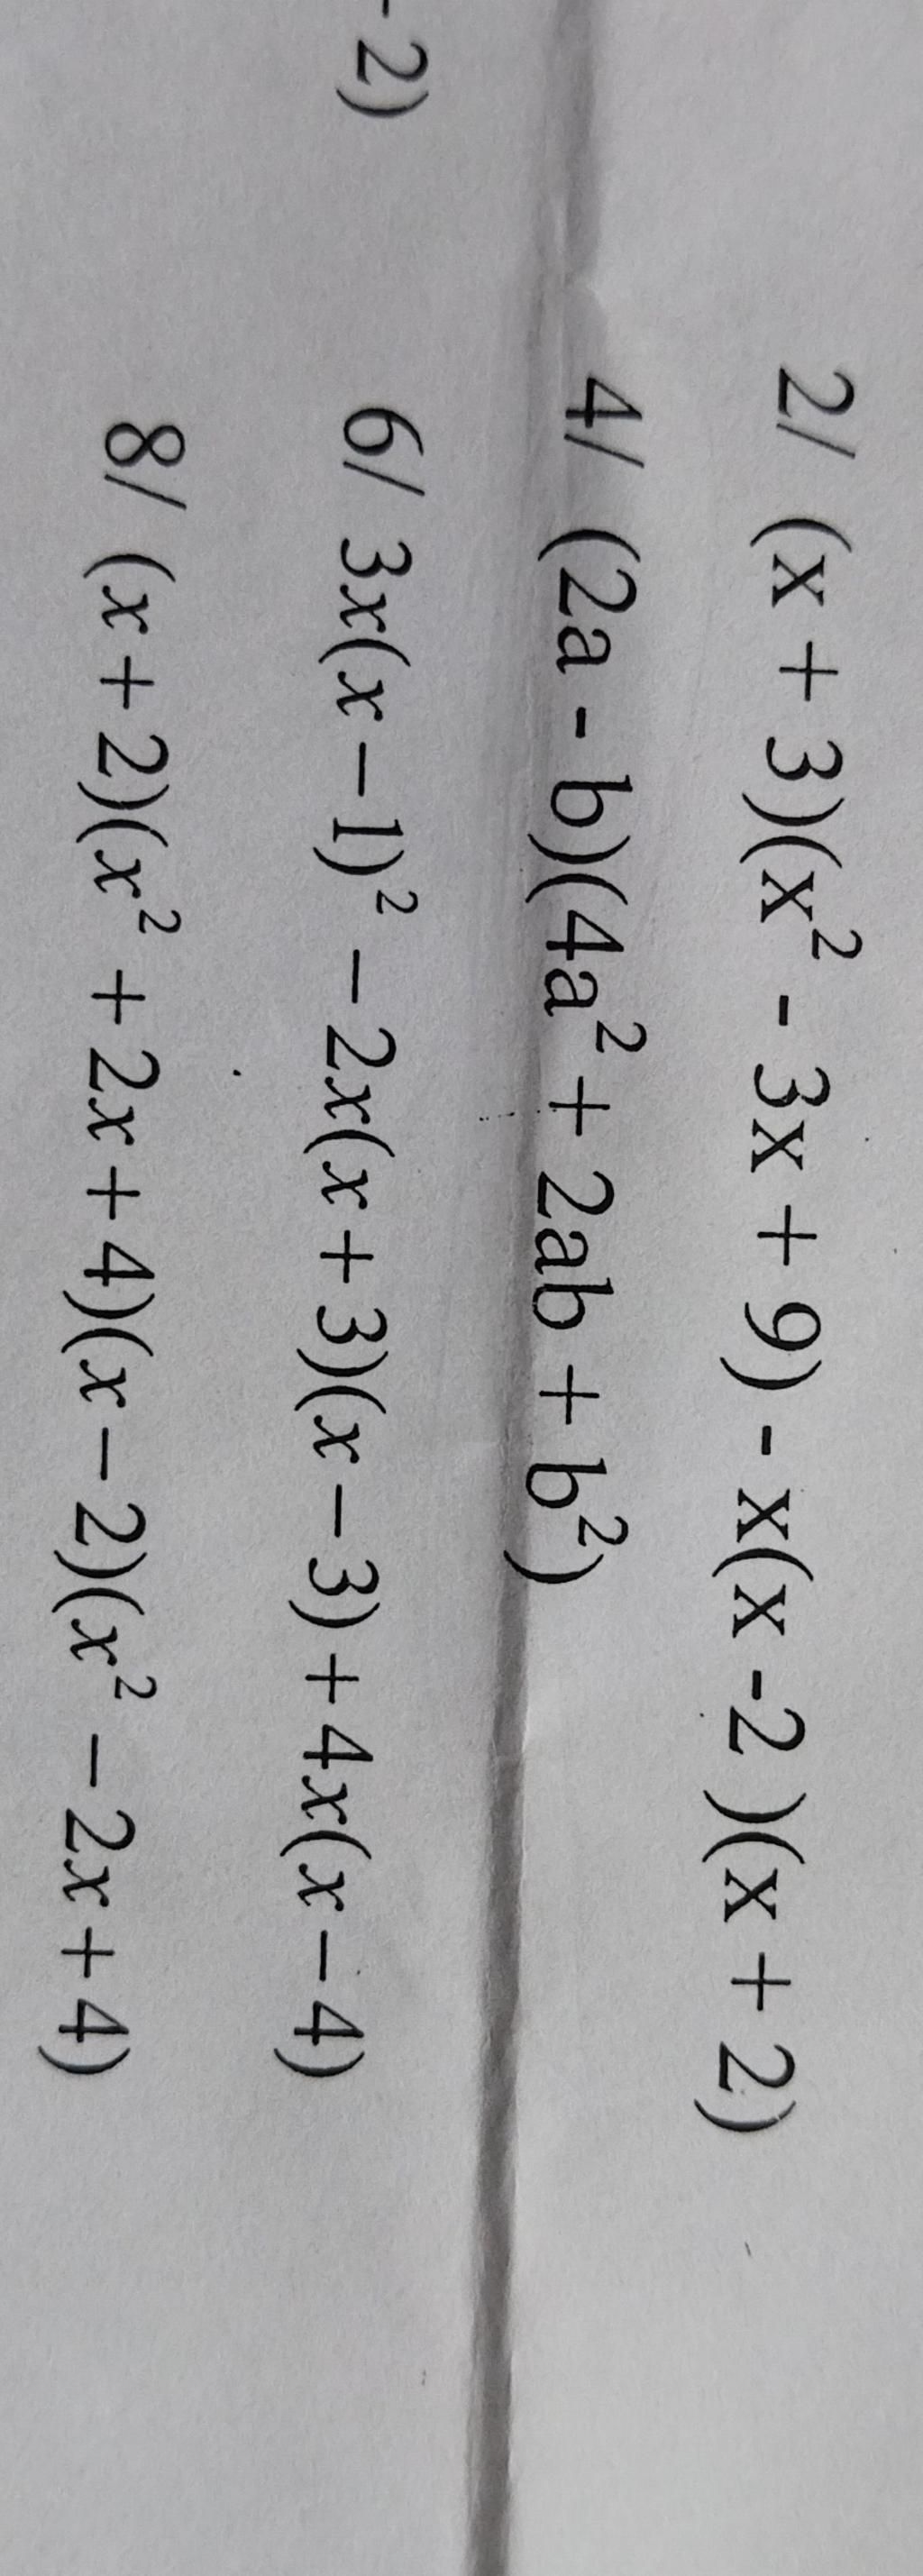 2/ (x + 3)(x² - 3x + 9) - x(x -2 )(x + 2)
4/ (2a - b)(4a² + 2ab + b²)
- 2)
6/ 3x(x – 1)² – 2x(x + 3)(x – 3) + 4x(x – 4)
8/ (x + 2)(x² + 2x + 4)(x – 2)(x² – 2x + 4)